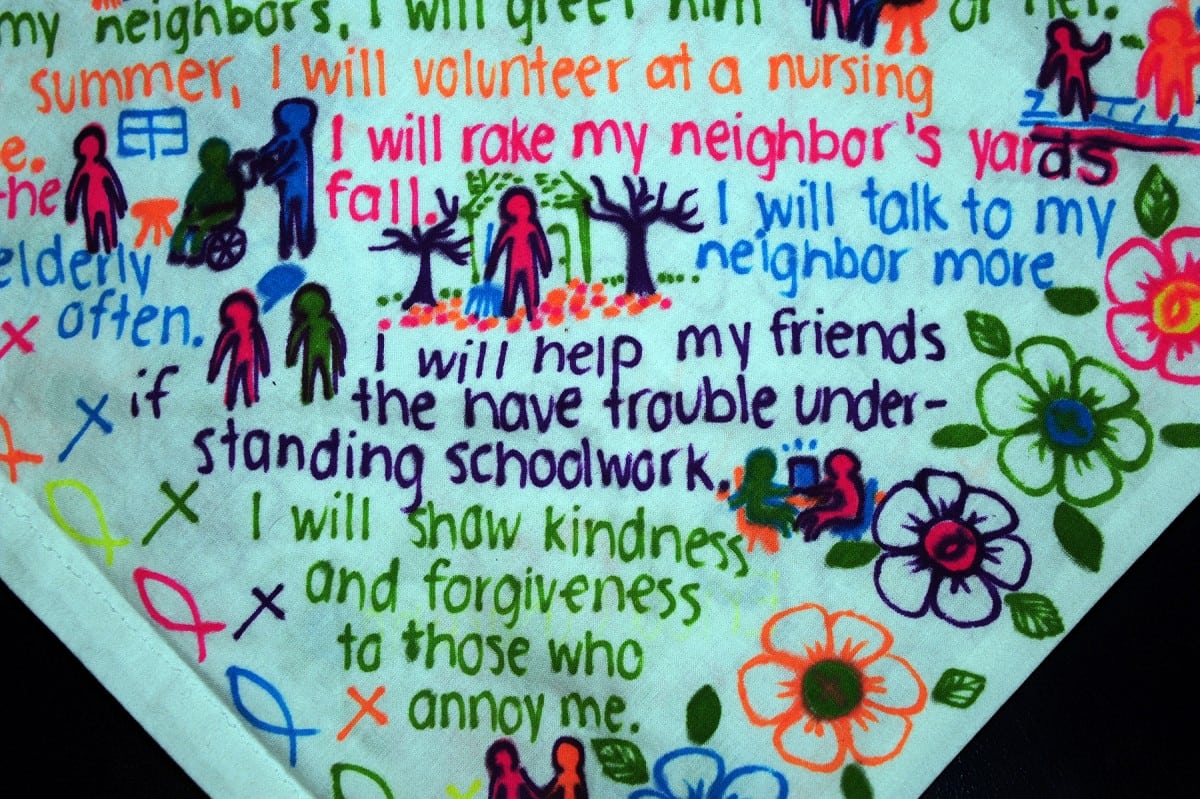 my neighbors, I will greet him or her.
summer, I will volunteer at a nursing
e. I will rake my neighbor's yards
he fall. I will talk to my
elderly neighbor more
often.
I will help my friends
if the have trouble under-
standing schoolwork.
I will show kindness
and forgiveness
to those who
annoy me.